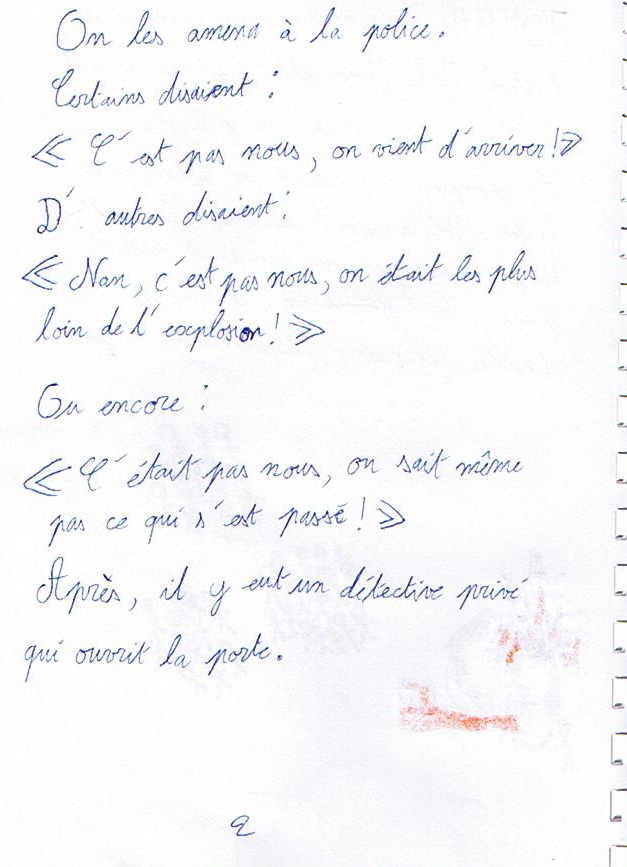 On les amena à la police.
Certains disaient :
« C'est pas nous, on vient d'arriver ! »
D'autres disaient :
« Nan, c'est pas nous, on était les plus
loin de l'explosion ! »
Ou encore :
« C'était pas nous, on sait même
pas ce qui s'est passé ! »
Après, il y eut un détective privé
qui ouvrit la porte.
2